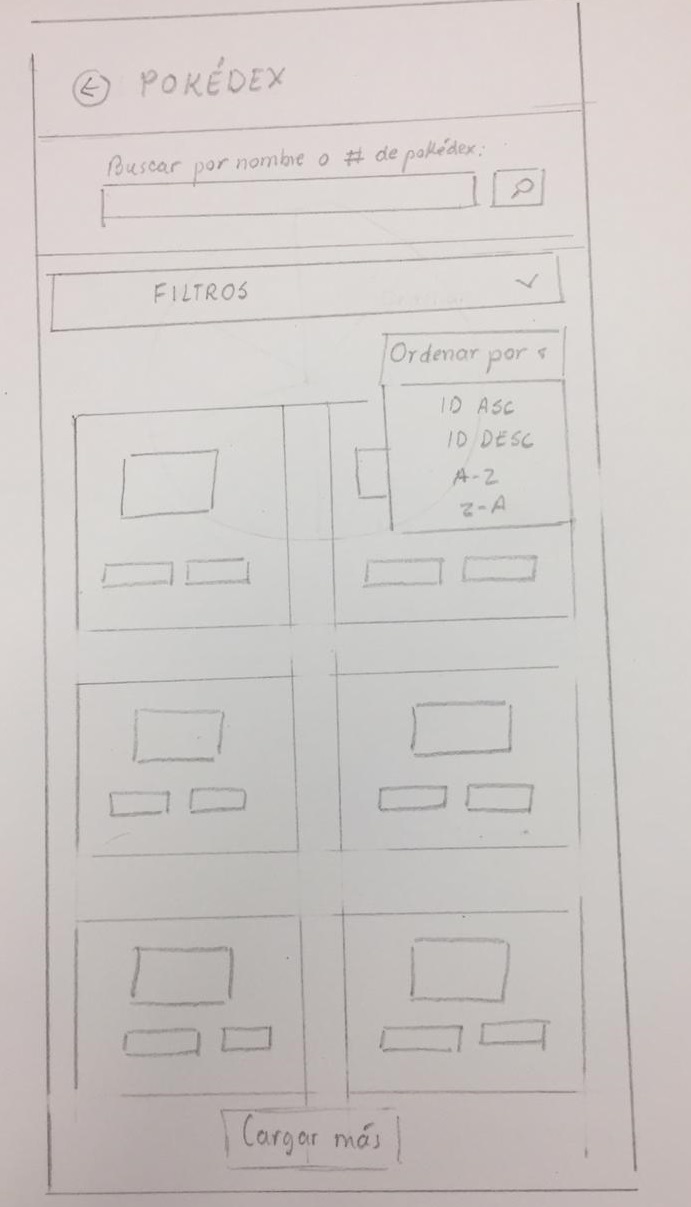 POKÉDEX
Buscar por nombre o # de pokédex:
FILTROS
Ordenar por
ID ASC
ID DESC
A-Z
Z-A
Cargar más